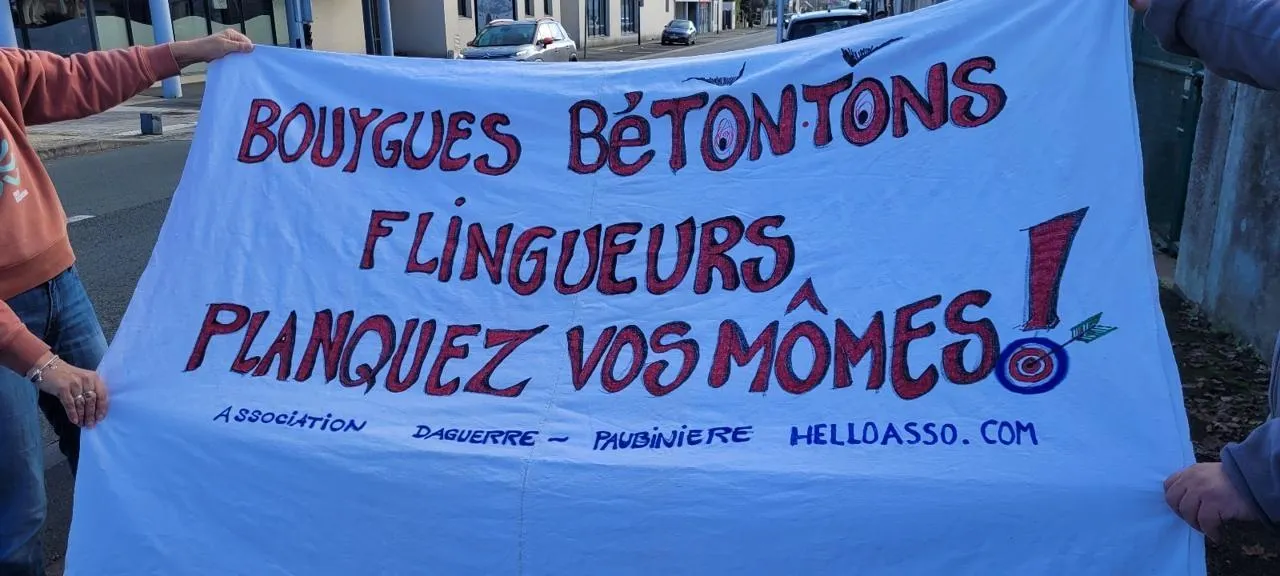 BOUYGUES BéTON·TONS
FLiNGUEURS
PLANQUEZ VOS MÔMES!
ASSOCIATION DAGUERRE ~ PAUBINIERE HELLOASSO.COM